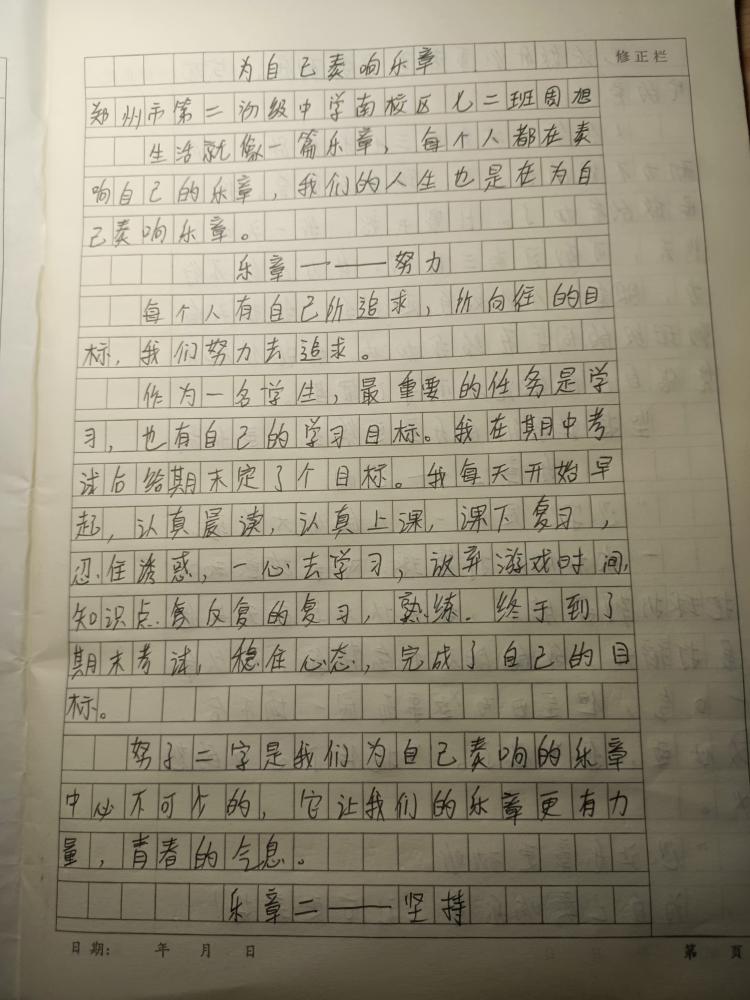 修正栏
为自己奏响乐章
郑州市第二初级中学南校区七二班周旭
生活就像一篇乐章，每个人都在奏
响自己的乐章，我们的人生也是在为自
己奏响乐章。
乐章一——努力
每个人有自己所追求，所向往的目
标，我们努力去追求。
作为一名学生，最重要的任务是学
习，也有自己的学习目标。我在期中考
试后给期末定了个目标。我每天开始早
起，认真晨读，认真上课，课下复习，
忍住诱惑，一心去学习，放弃游戏时间，
知识点复反复的复习，熟练．终于到了
期末考试，稳住心态，完成了自己的目
标。
努子二字是我们为自己奏响的乐章
中必不可少的，它让我们的乐章更有力
量，青春的气息。
乐章二——坚持
日期： 年 月 日 第 页